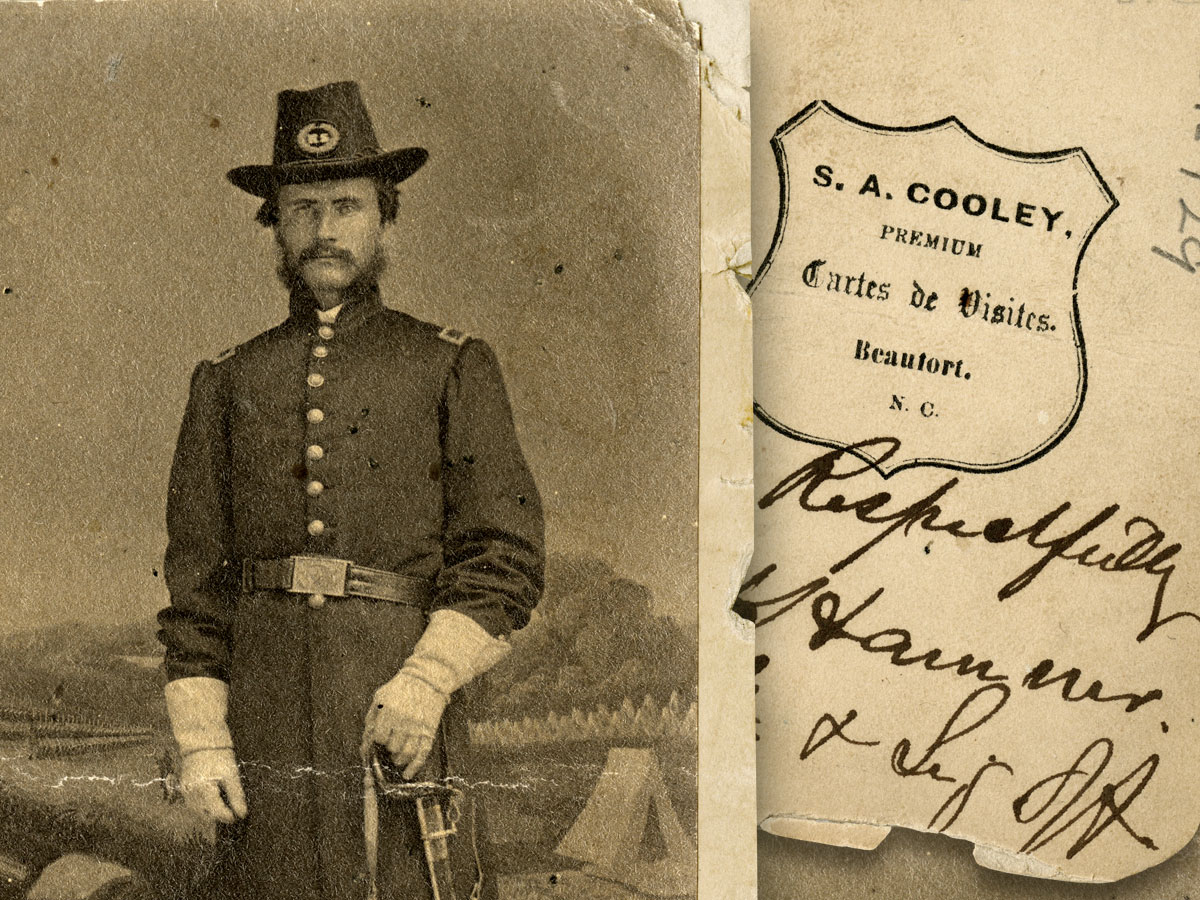 S. A. COOLEY,
PREMIUM
Cartes de Visites.
Beaufort.
N. C.
Respectfully
Hammer.
& Sig